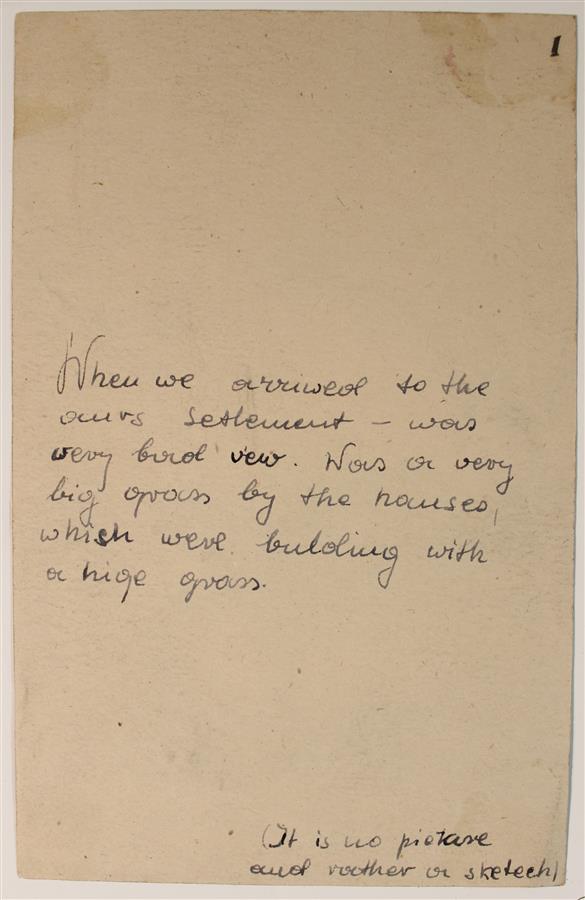 1
When we arriwed to the
ours Setlement – was
wery bad vew. Was a very
big grass by the houses,
which were building with
a hige grass.
(It is no pictare
and rather a sketech)